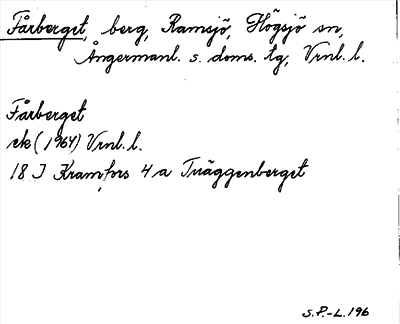 Fårberget, berg, Ramsjö, Högsjö sn,
Ångermanl. s. doms. tg, Vrnl. l.
Fårberget
ek (1964) Vrnl. l.
18 J Kramfors 4 a Träggenberget
S.P.-L. 196